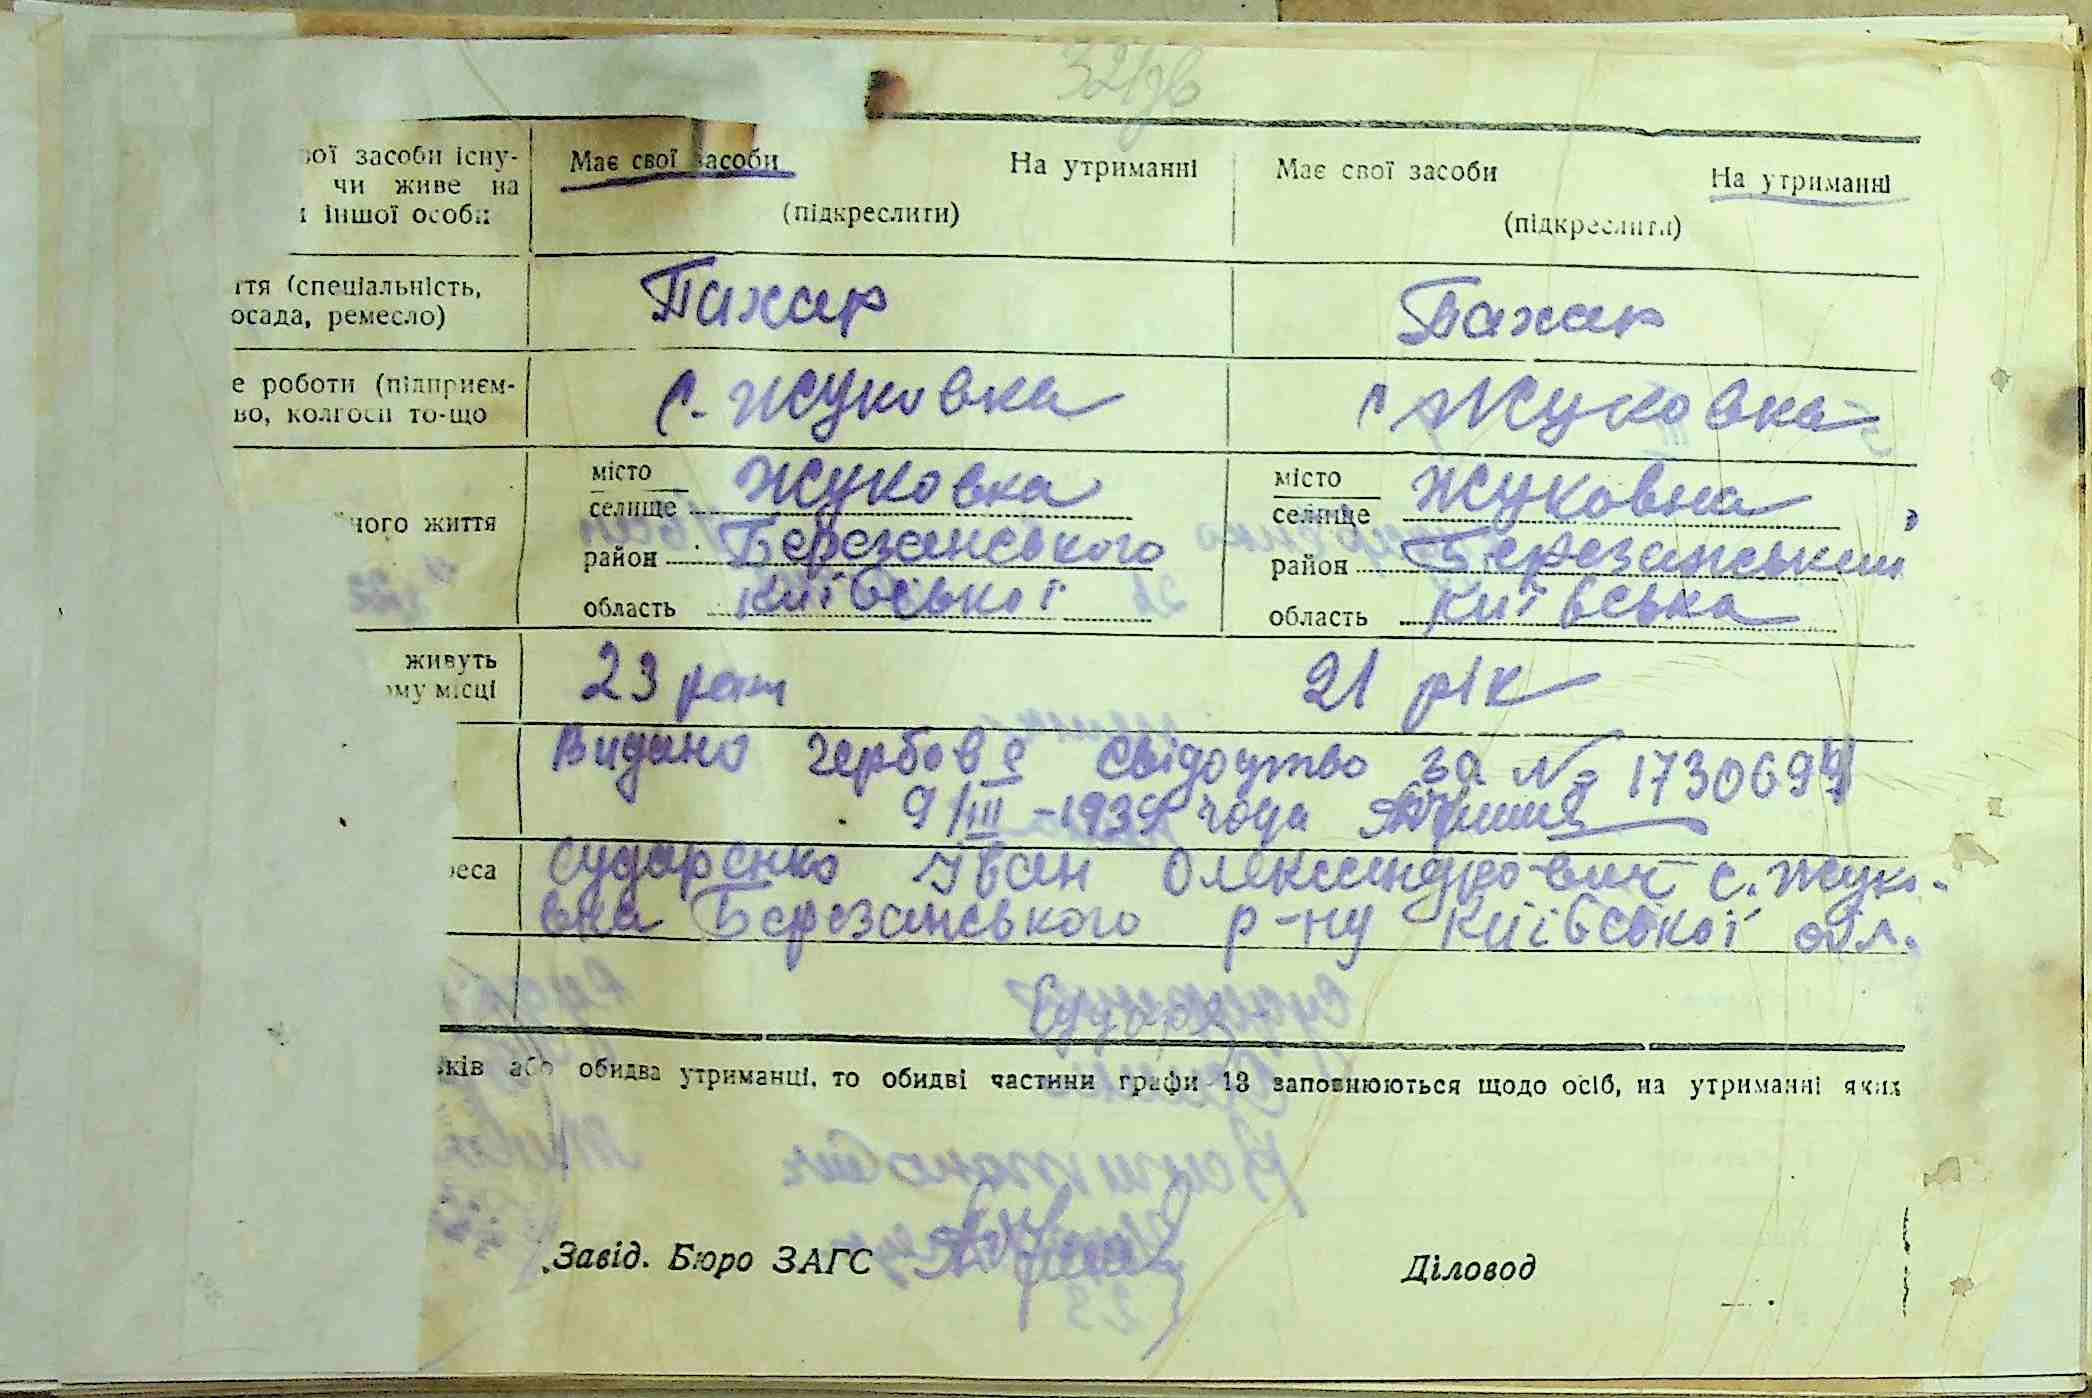 32 зв
вої засоби існу- Має свої засоби На утриманні Має свої засоби На утриманні
чи живе на
і іншої особи (підкреслити) (підкреслити)
ття (спеціальність, Пахар Пахар
осада, ремесло)
е роботи (підприєм- с. Жуковка с Жуковка
во, колгосп то-що
місто Жуковка місто Жуковка
ного життя селище селище
район Березанського район Березанський
область Київської область Київська
живуть 23 роки 21 рік
ому місці
Видано гербове свідоцтво за № 1730699
9/III-1939 года
реса Сударенко Іван Олександрович с. Жуко-
вка Березанського р-ну Київської обл.
ків або обидва утриманці, то обидві частини графи 13 заповнюються щодо осіб, на утриманні яких
Завід. Бюро ЗАГС Діловод